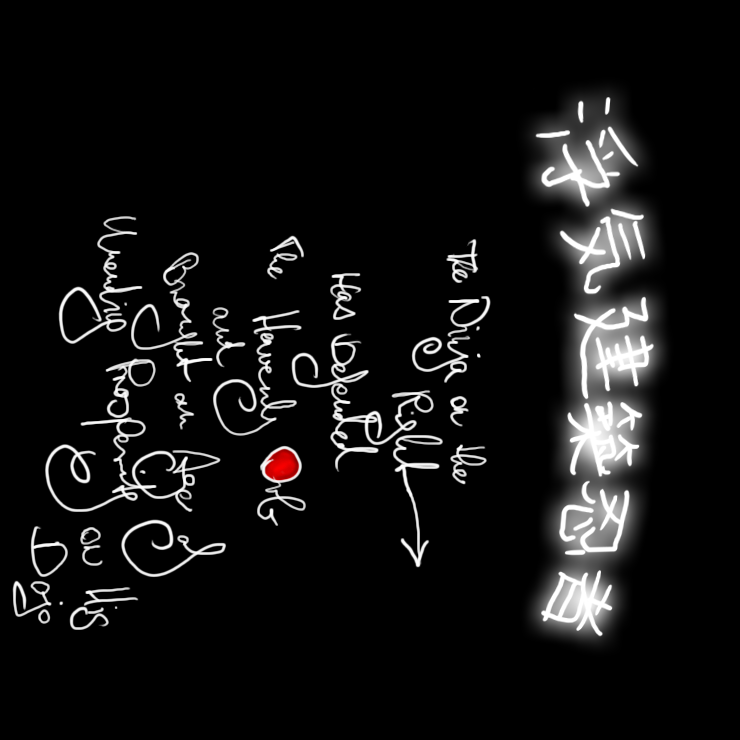 浮気建築忍者
The Ninja on the
Right
Has Defended
The Heavenly Orb
and
Brought an Age Of
Unending Prosperity
on His
Dojo